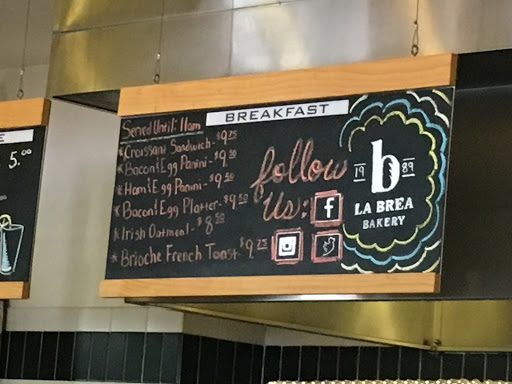 BREAKFAST
Served Until: 11am
*Croissant Sandwich - $9.25
*Bacon & Egg Panini - $9.50
*Ham & Egg Panini - $9.50
*Bacon & Egg Platter - $9.50
*Irish Oatmeal - $8.50
*Brioche French Toast - $9.25
follow
Us:
f
b
19 89
LA BREA
BAKERY
E
5.00